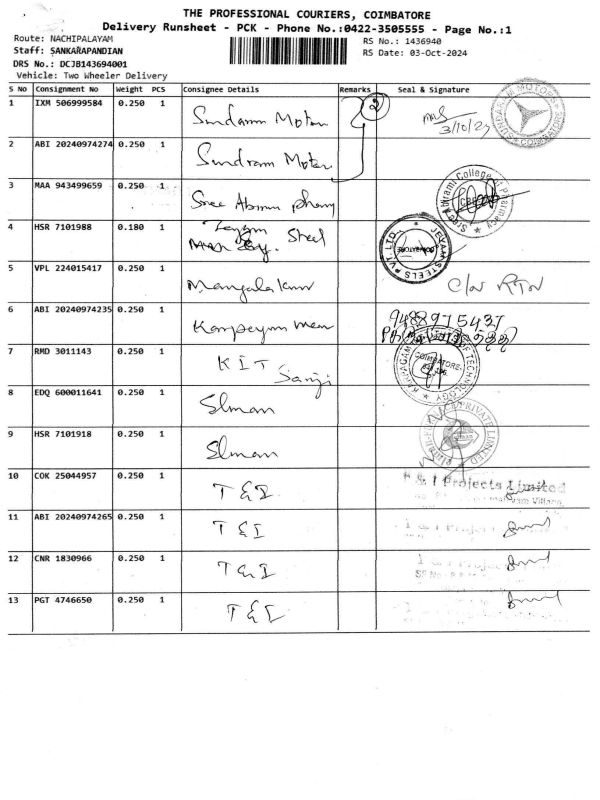 THE PROFESSIONAL COURIERS, COIMBATORE
Delivery Runsheet - PCK - Phone No.:0422-3505555 - Page No.:1
Route: NACHIPALAYAM
RS No.: 1436940
Staff: SANKARAPANDIAN
RS Date: 03-Oct-2024
DRS No.: DCJB143694001
Vehicle: Two Wheeler Delivery
S No Consignment No Weight PCS Consignee Details Remarks Seal & Signature
1 IXM 506999584 0.250 1 Sundaram Motor 2 3/10/24
2 ABI 20240974274 0.250 1 Sundram Motor
3 MAA 943499659 0.250 1 Sree Pharm
4 HSR 7101988 0.180 1 Steel JEYAM STEELS PVT. LTD.
5 VPL 224015417 0.250 1 C/N RTN
6 ABI 20240974235 0.250 1 9488975437
7 RMD 3011143 0.250 1 KIT Sanji COIMBATORE
8 EDQ 600011641 0.250 1 Slman
9 HSR 7101918 0.250 1 Slman PRIVATE LIMITED
10 COK 25044957 0.250 1 T & I Projects Limited
11 ABI 20240974265 0.250 1 T & I
12 CNR 1830966 0.250 1 T & I
13 PGT 4746650 0.250 1 T & I